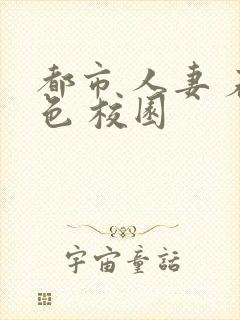 都市人妻
色校园
宇宙童話